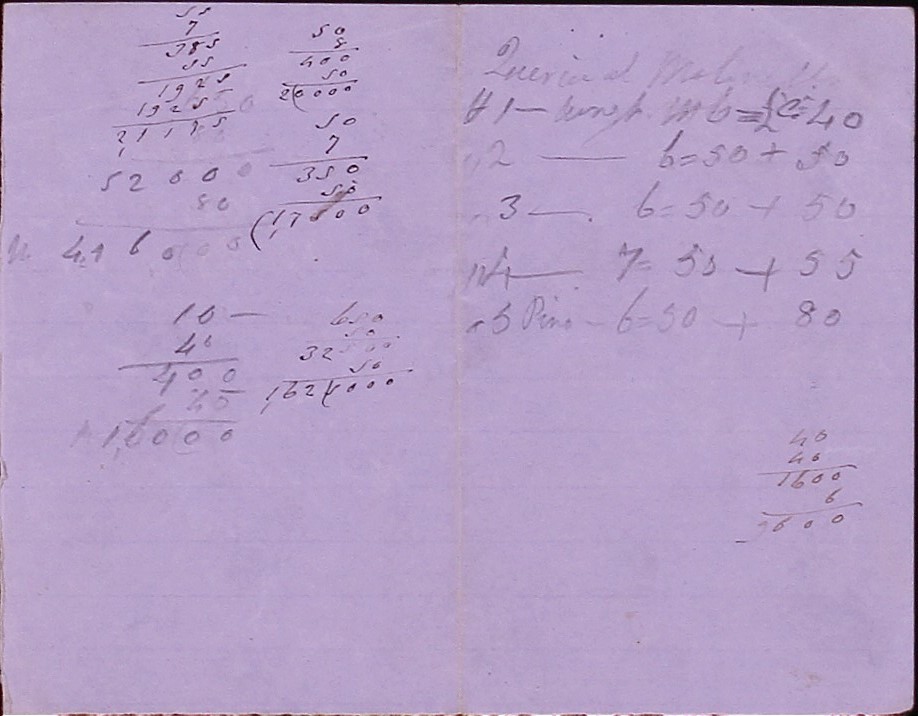 55
7
385
55
1925
1925
21175
52000
80
4160000
10 —
40
400
40
16000
50
8
400
50
20000
50
7
350
50
17500
650
50
32500
50
1,62 5000
# 1 — 40
2 — 6=50 + 50
3 — 6=50 + 50
4 — 7=50 + 55
5 Pino — 6=50 + 80
40
40
1600
6
9600